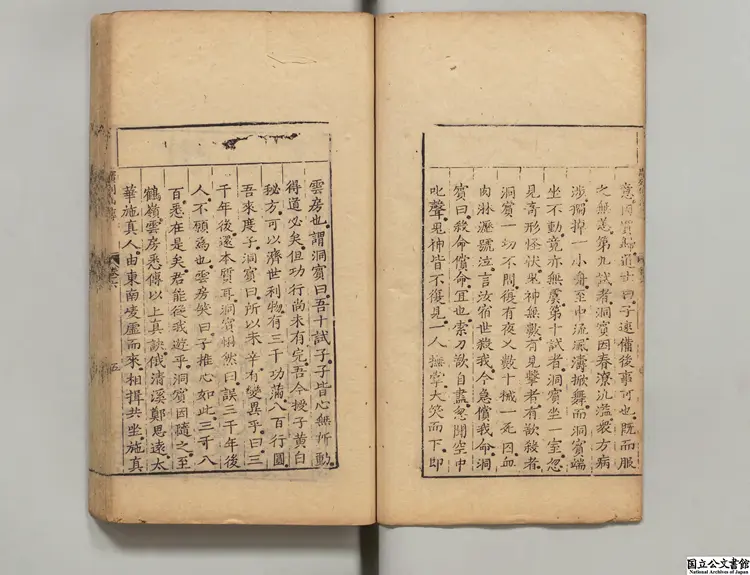 意因買歸道士曰子速備後事可也既而服
之無恙第九試者洞賓因春潦汎溢衆方病
涉獨掉一小舟至中流風濤掀舞而洞賓端
坐不動竟亦無虞第十試者洞賓坐一室忽
見奇形怪狀鬼神無數有見擊者有欲殺者
洞賓一切不問復有夜叉數十械一死囚血
肉淋漓號泣言汝宿世殺我今急償我命洞
賓曰殺命償命宜也索刀欲自盡忽聞空中
叱聲鬼神皆不復見一人撫掌大笑而下即
雲房也謂洞賓曰吾十試子子皆心無所動
得道必矣但功行尚未有完吾今授子黃白
秘方可以濟世利物有三千功滿八百行圓
吾來度子洞賓曰所以未辛有變異乎曰三
千年後還本質耳洞賓惆然曰誤三千年後
人不願為也雲房笑曰子推心如此三可八
百悉在是矣君能從我遊乎洞賓因隨之至
鶴嶺雲房悉傳以上真訣俄清溪鄭思遠太
華施真人由東南凌虛而來相揖共坐施真
五
国立公文書館
National Archives of Japan